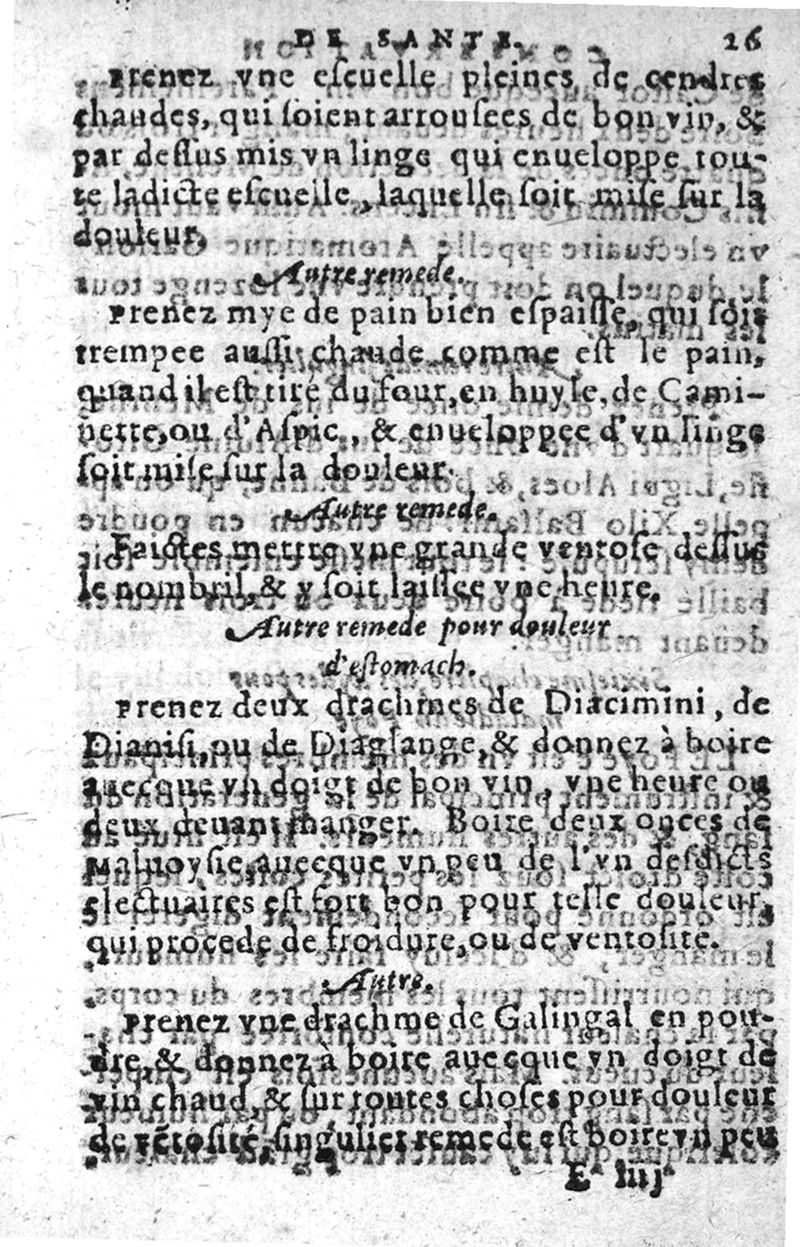 DE SANTE. 26
Prenez vne escuelle pleines de cendres
chaudes, qui soient arrousees de bon vin, &
par dessus mis vn linge qui enueloppe tou-
te ladicte escuelle, laquelle soit mise sur la
douleur.
Autre remede.
Prenez mye de pain bien espaisse, qui soit
trempee aussi chaude comme est le pain,
quand il est tiré du four, en huyle, de Cami-
nette, ou d'Aspic, & enueloppee d'vn linge
soit mise sur la douleur.
Autre remede.
Faictes mettre vne grande ventose dessus
le nombril, & y soit laissee vne heure.
Autre remede pour douleur
d'estomach.
Prenez deux drachmes de Diacimini, de
Dianisi, ou de Diaglange, & donnez à boire
auecque vn doigt de bon vin, vne heure ou
deux deuant manger. Boire deux onces de
Maluoysie, auecque vn peu de l'vn desdicts
electuaires est fort bon pour telle douleur,
qui procede de froidure, ou de ventosite.
Autre.
Prenez vne drachme de Galingal en pou-
dre, & donnez à boire auecque vn doigt de
vin chaud, & sur toutes choses pour douleur
de vẽtosité, singulier remede est boire vn peu
E iiij